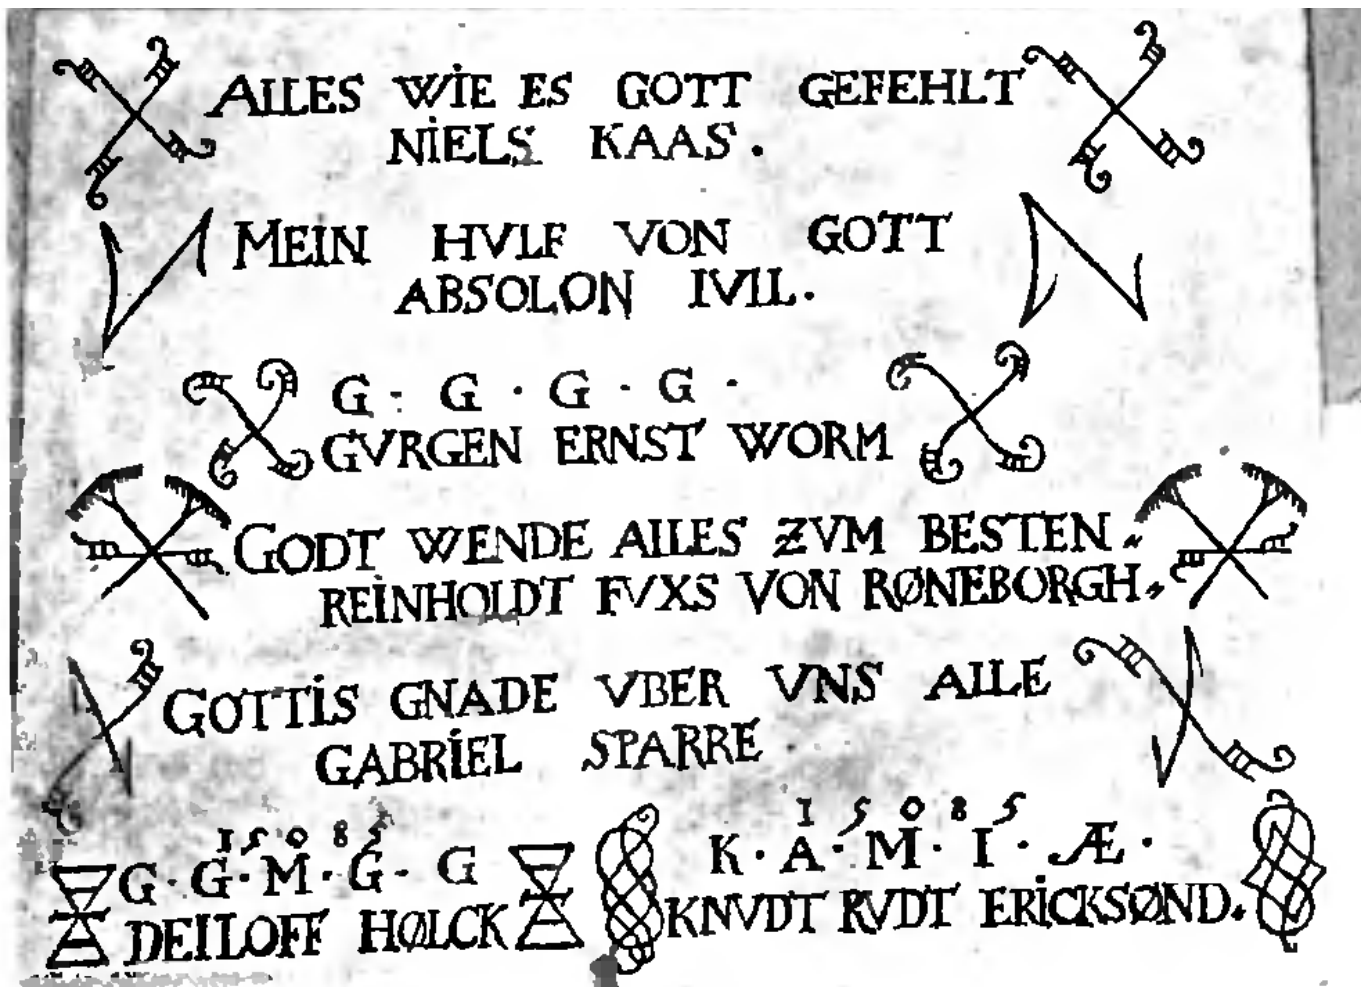 ALLES WIE ES GOTT GEFEHLT
NIELS KAAS.
MEIN HVLF VON GOTT
ABSOLON IVIL.
G · G · G · G ·
GVRGEN ERNST WORM
GODT WENDE ALLES ZVM BESTEN
REINHOLDT FVXS VON RØNEBORGH
GOTTIS GNADE VBER VNS ALLE
GABRIEL SPARRE
15085
G · G · M · G · G
DETLOFF HØLCK
15085
K · A · M · I · Æ ·
KNVDT RVDT ERICKSØND